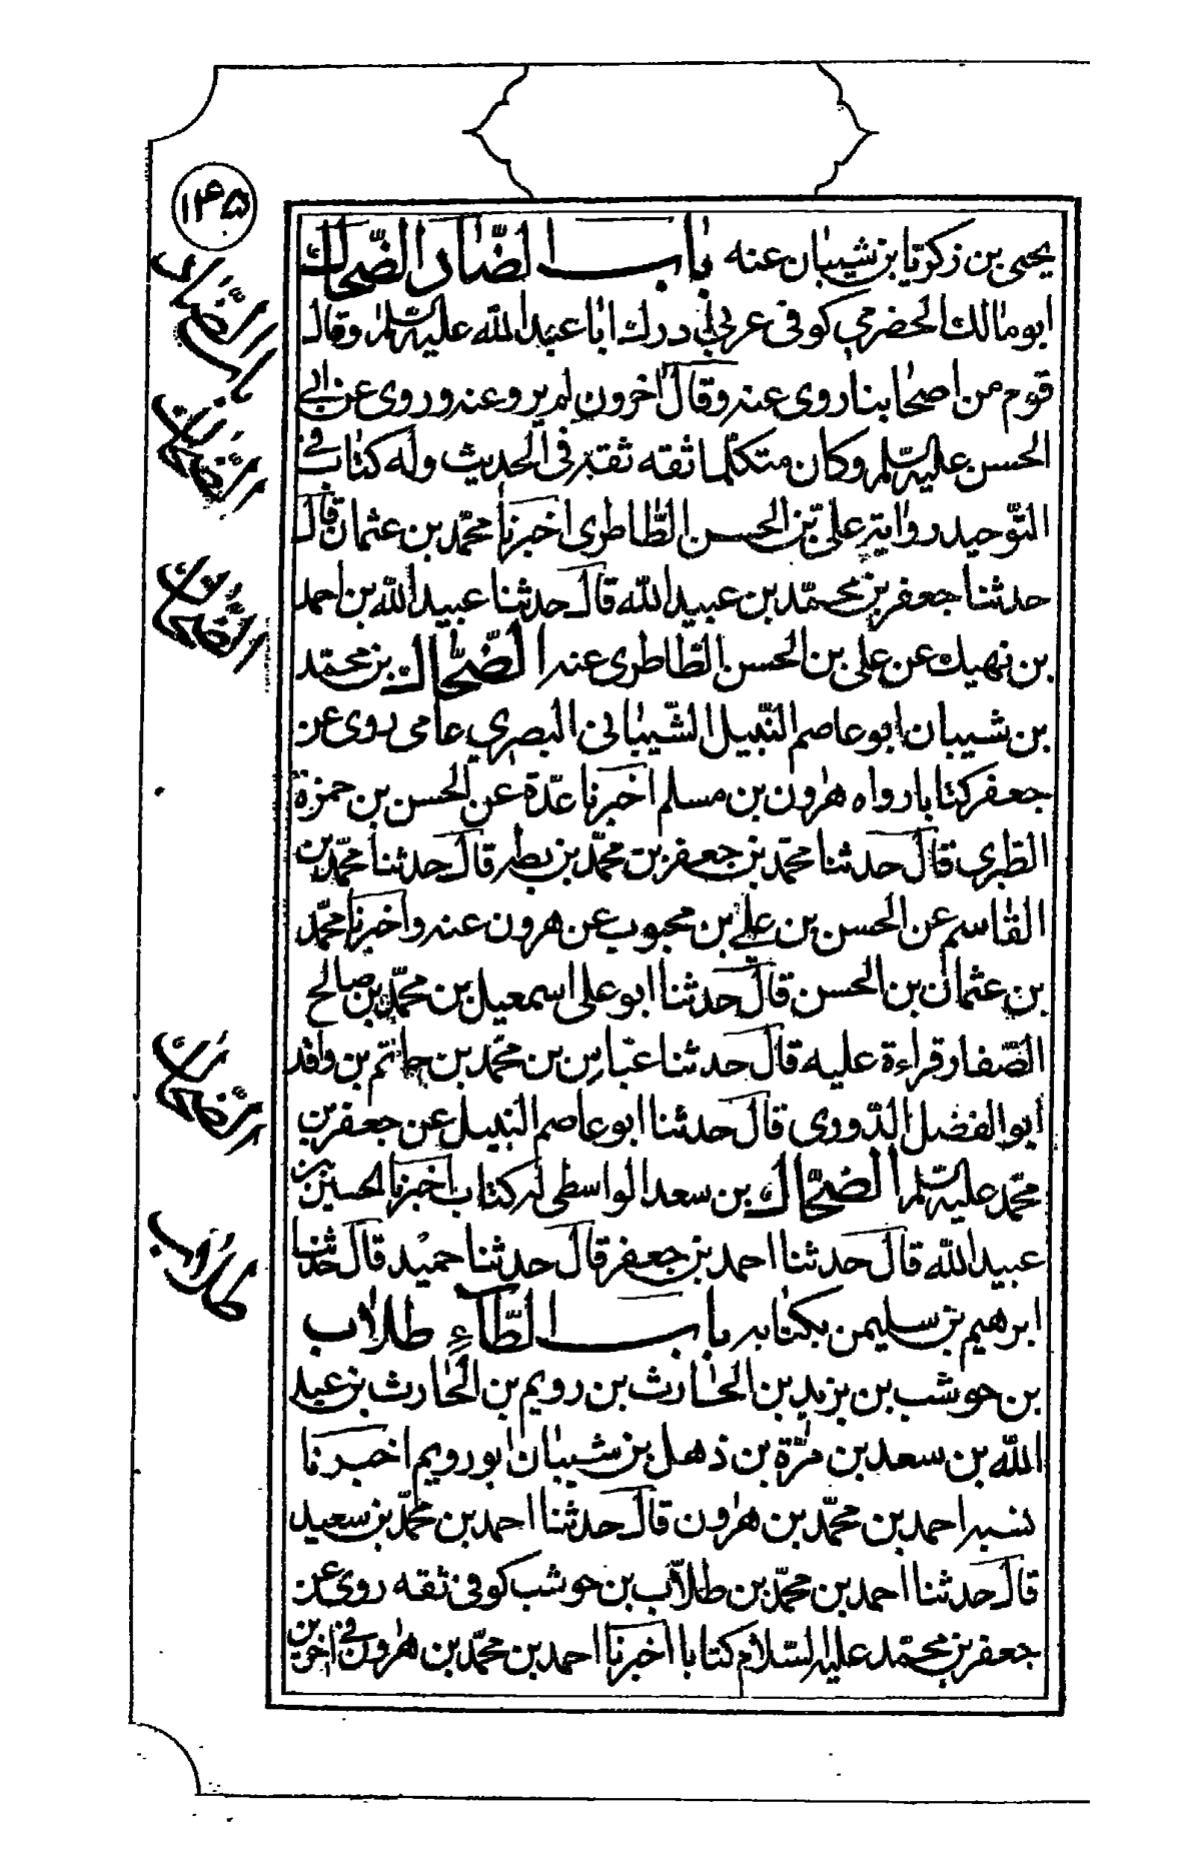 ۱۴۵
يحيى بن زكريا بن شيبان عنه باب الضاد الضحاك
ابو مالك الحضرمي كوفى عربى ادرك ابا عبد الله عليه السلم وقال
قوم من اصحابنا روى عنه وقال اخرون لم يرو عنه وروى عن ابى
الحسن عليه السلم وكان متكلما ثقه ثقة فى الحديث وله كتاب فى
التوحيد رواية على بن الحسن الطاطرى اخبرنا محمد بن عثمان قال
حدثنا جعفر بن محمد بن عبيد الله قال حدثنا عبيد الله بن احمد
بن نهيك عن على بن الحسن الطاطرى عنه الضحاك بن محمد
بن شيبان ابو عاصم النبيل الشيبانى البصرى عامى روى عن
جعفر كتابا رواه هرون بن مسلم اخبرنا عدة عن الحسن بن حمزة
الطبرى قال حدثنا محمد بن جعفر بن محمد بن بطه قال حدثنا محمد بن
القاسم عن الحسن بن على بن محبوب عن هرون عنه واخبرنا محمد
بن عثمان بن الحسن قال حدثنا ابو على اسمعيل بن محمد بن صالح
الصفار قراءة عليه قال حدثنا عباس بن محمد بن حاتم بن واقد
ابو الفضل الدورى قال حدثنا ابو عاصم النبيل عن جعفر بن
محمد عليه السلم الضحاك بن سعد الواسطى له كتاب اخبرنا الحسين بن
عبيد الله قال حدثنا احمد بن جعفر قال حدثنا حميد قال حدثنا
ابرهيم بن سليمن بكتابه باب الطاء طلاب
بن حوشب بن يزيد بن الحارث بن رويم بن الحارث بن عبد
الله بن سعد بن مرة بن ذهل بن شيبان ابو رويم اخبرنا
بنسبه احمد بن محمد بن هرون قال حدثنا احمد بن محمد بن سعيد
قال حدثنا احمد بن محمد بن طلاب بن حوشب كوفى ثقه روى عن
جعفر بن محمد عليه السلام كتابا اخبرنا احمد بن محمد بن هرون فى اخرين
باب الضاد
الضحاك
الضحاك
الضحاك
طلاب